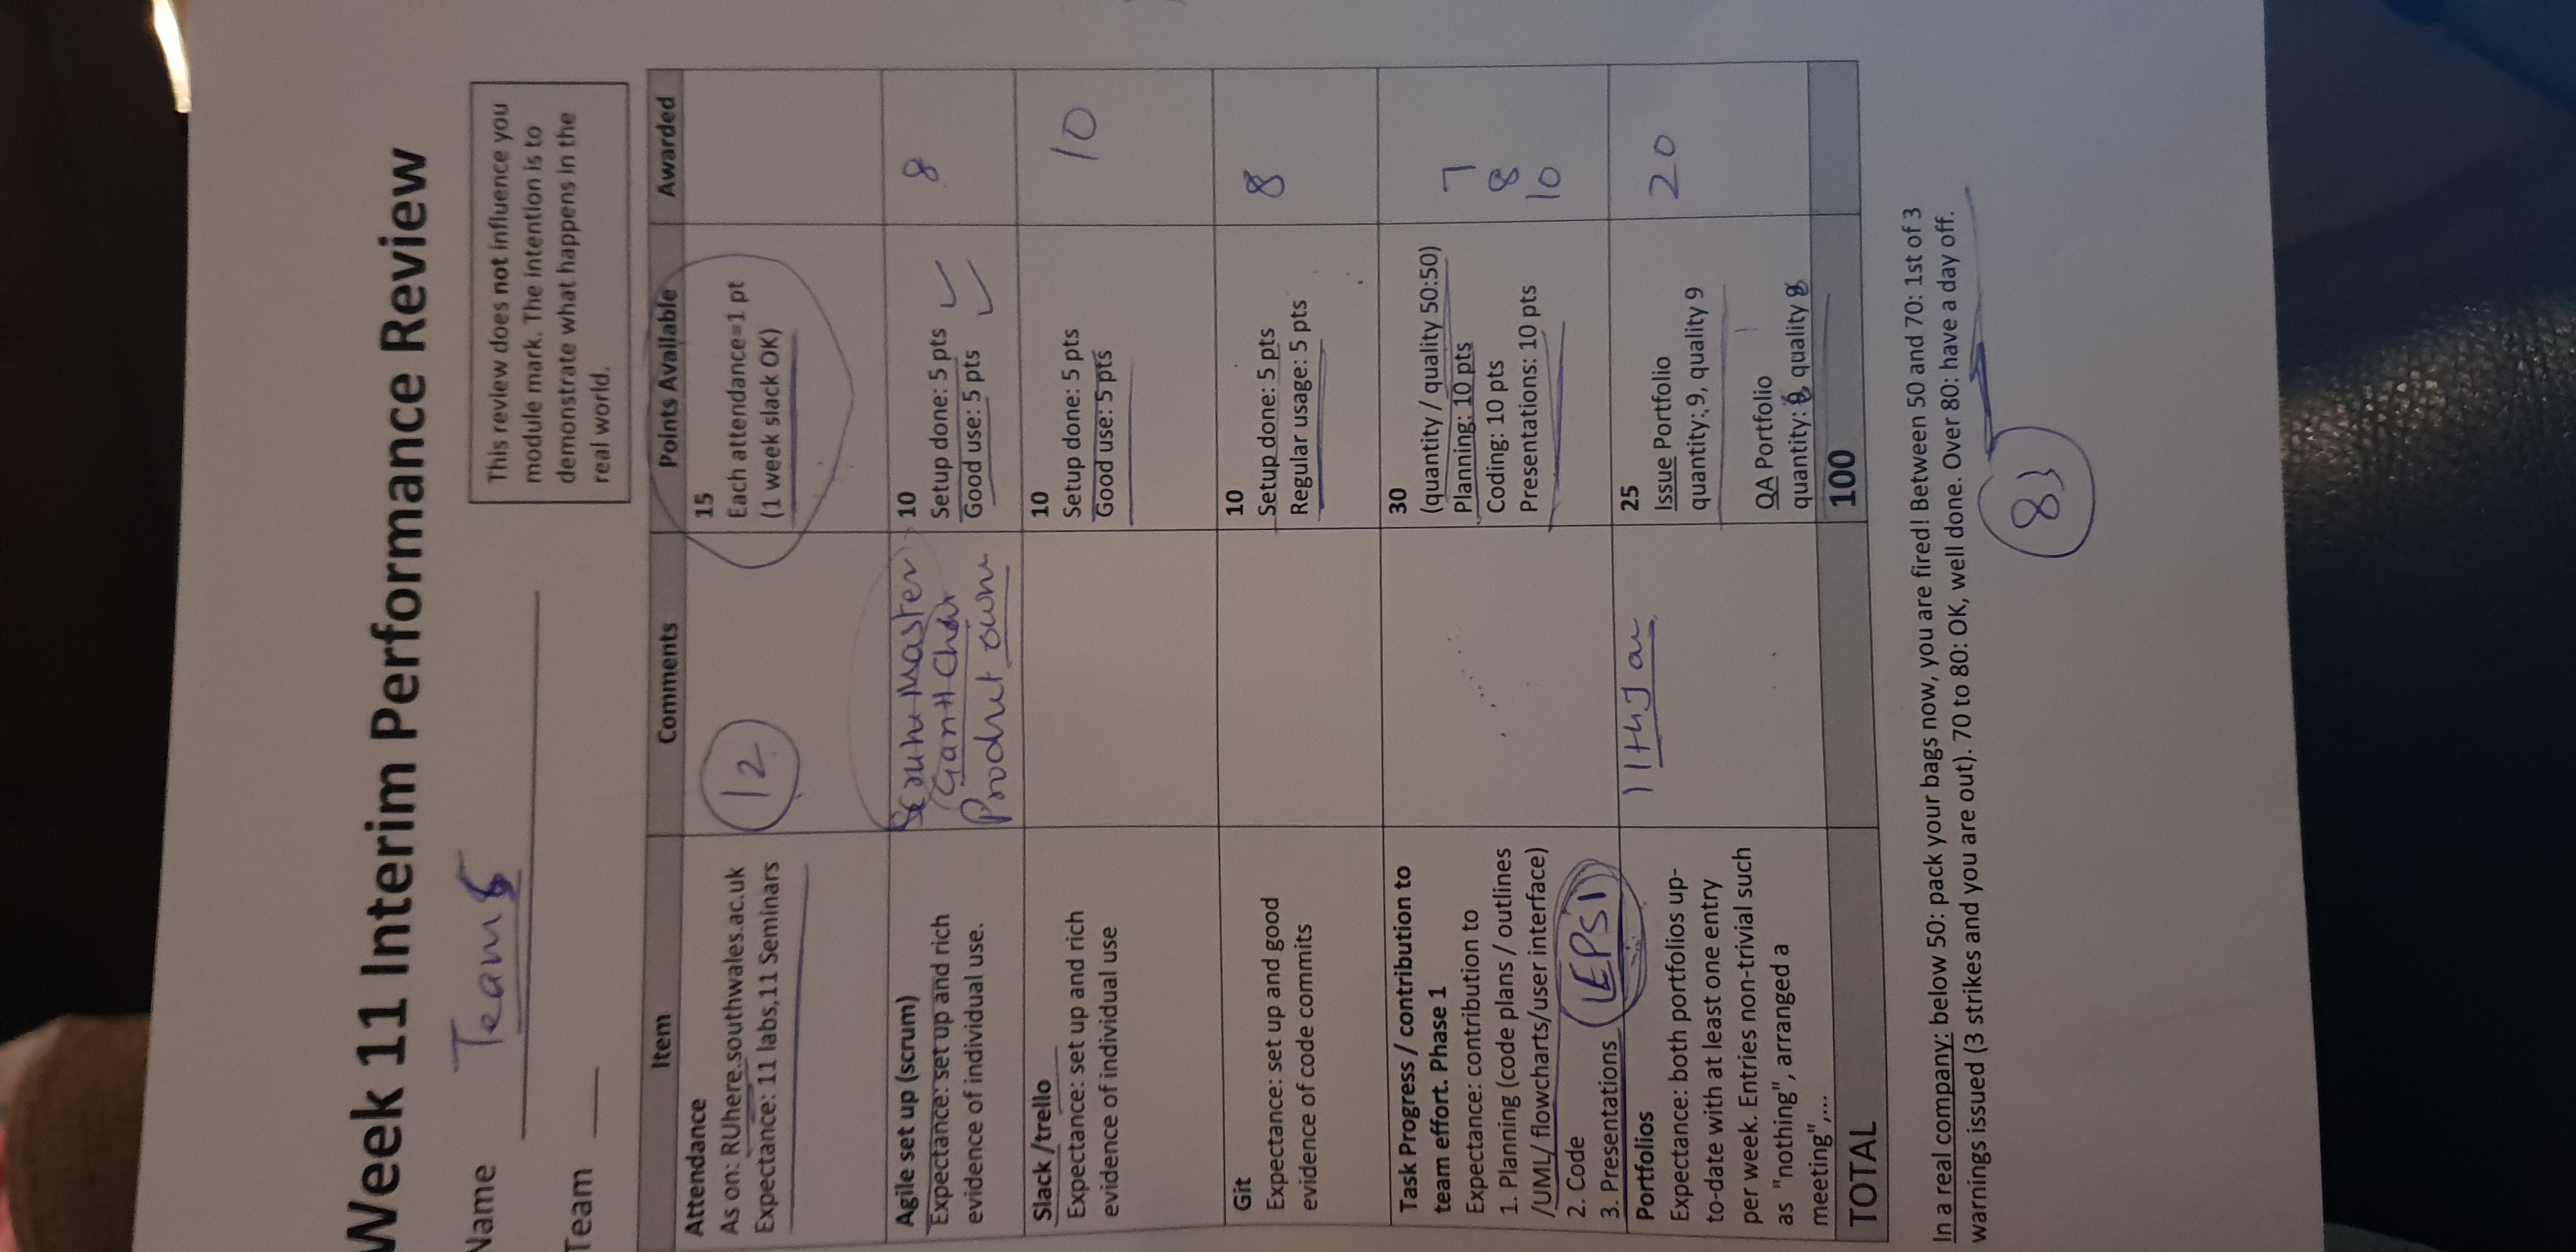 Week 11 Interim Performance Review
Name Team 5
Team
This review does not influence you
module mark. The intention is to
demonstrate what happens in the
real world.
Item Comments Points Available Awarded
Attendance
As on: RUhere.southwales.ac.uk
Expectance: 11 labs,11 Seminars
12
15
Each attendance=1 pt
(1 week slack OK)
Agile set up (scrum)
Expectance: set up and rich
evidence of individual use.
Scrum Master
Gantt Char
Product own
10
Setup done: 5 pts
Good use: 5 pts
8
Slack /trello
Expectance: set up and rich
evidence of individual use
10
Setup done: 5 pts
Good use: 5 pts
10
Git
Expectance: set up and good
evidence of code commits
10
Setup done: 5 pts
Regular usage: 5 pts
8
Task Progress / contribution to
team effort. Phase 1
Expectance: contribution to
1. Planning (code plans / outlines
/UML/ flowcharts/user interface)
2. Code
3. Presentations
LEPSI
30
(quantity / quality 50:50)
Planning: 10 pts
Coding: 10 pts
Presentations: 10 pts
7
8
10
Portfolios
Expectance: both portfolios up-
to-date with at least one entry
per week. Entries non-trivial such
as "nothing", arranged a
meeting",...
11th Jan
25
Issue Portfolio
quantity: 9, quality 9
QA Portfolio
quantity: , quality
20
TOTAL
100
In a real company: below 50: pack your bags now, you are fired! Between 50 and 70: 1st of 3
warnings issued (3 strikes and you are out). 70 to 80: OK, well done. Over 80: have a day off.
83